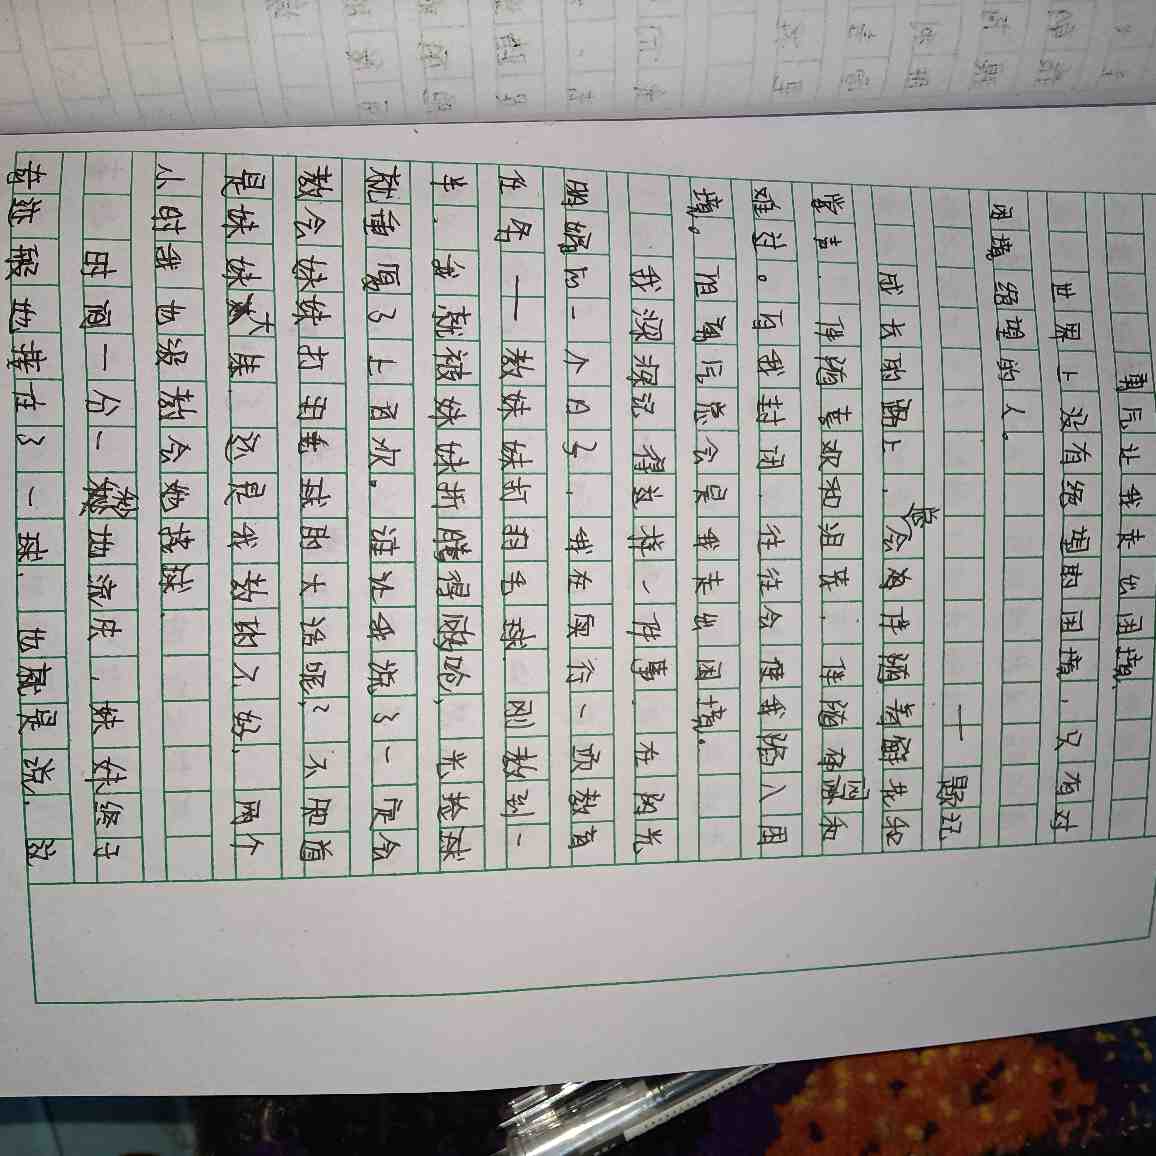 勇气让我走出困境
世界上没有绝望的困境，只有对
困境绝望的人。
——题记
成长的路上，总会有伴随着鲜花和
掌声，伴随喜欢和沮丧，伴随和
难过。自我封闭，往往会使我陷入困
境。但勇气总会是我走出困境。
我深深记得这样一件事，在阳光
明媚的一个日子，我在履行一项教育
任务——教妹妹打羽毛球。刚教到一
半，我就被妹妹折腾得够呛，光捡球
就重复了上百次。谁让我说了一定会
教会妹妹打羽毛球的大话呢？不知道
是妹妹太笨，还是我教的不好，两个
小时我也没教会她接球。
时间一分一秒地流失，妹妹终于
般地接住了一球，也就是说，没